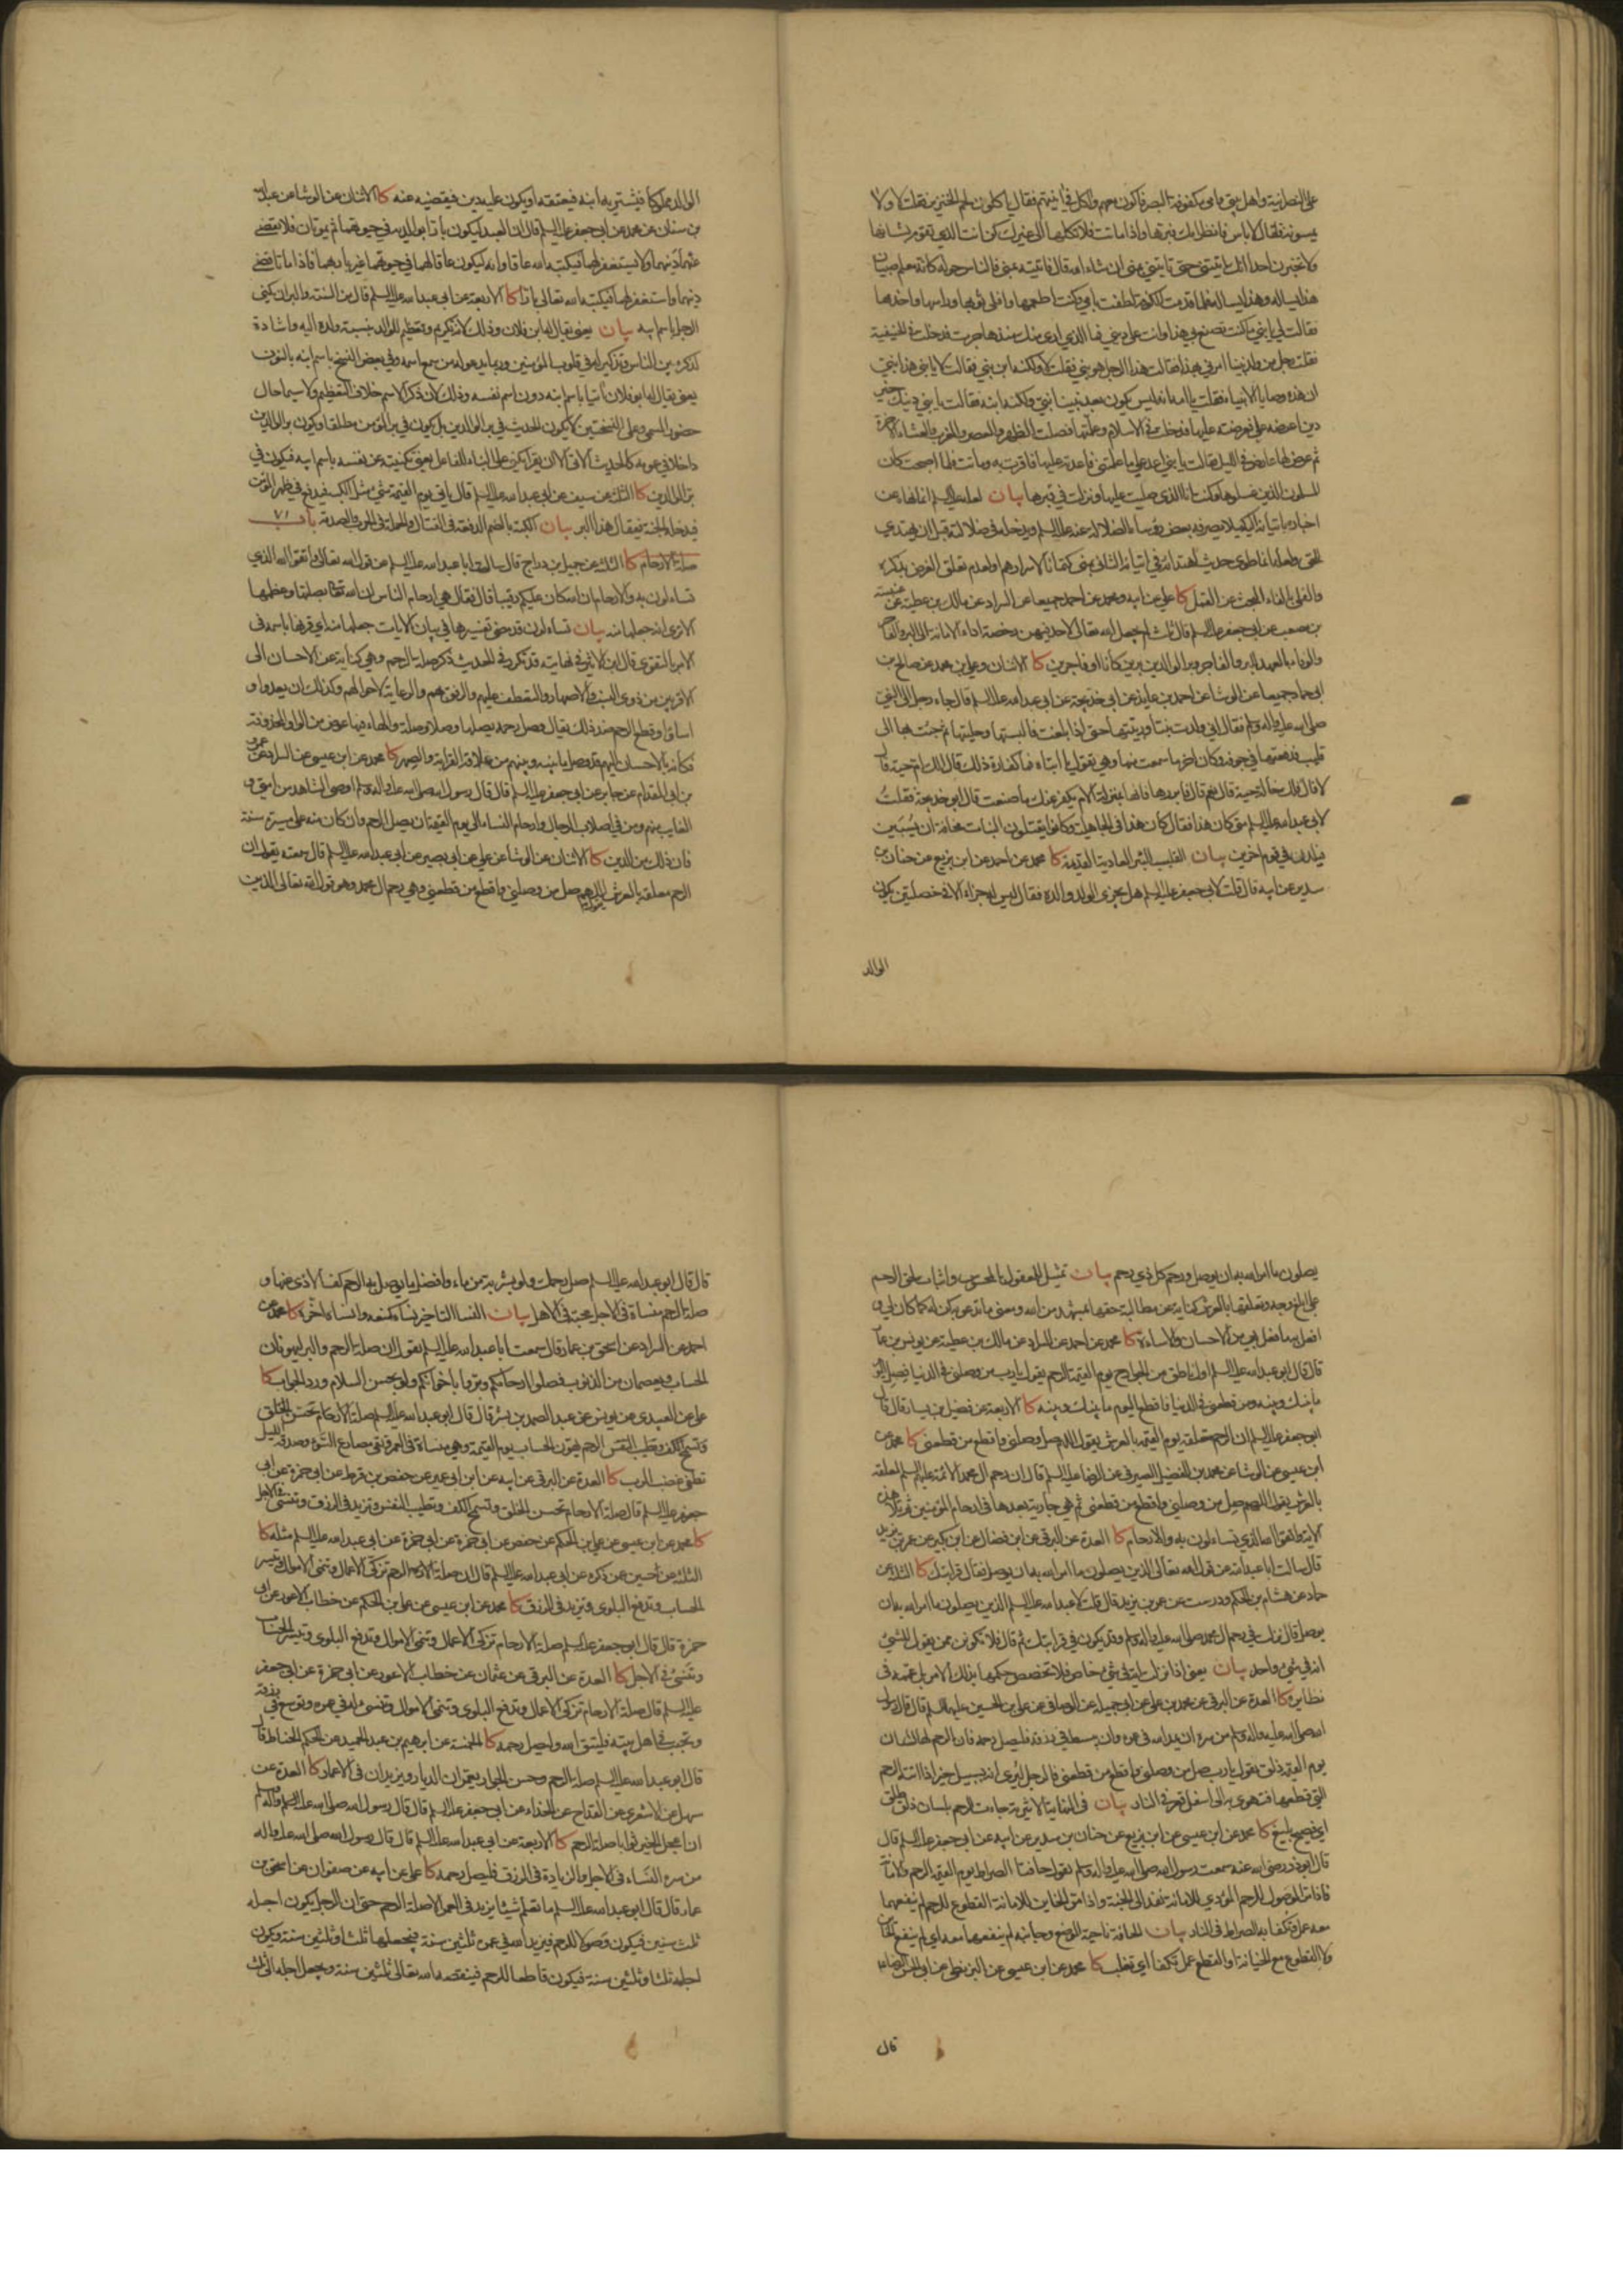 على النصرانية واهل بيتي وامي مكفوفة البصر فاكون معهم واكل في انيتهم فقال ياكلون لحم الخنزير فقلت لا ولا
يمسونه فقال لا باس فانظر امك فبرها واذا ماتت فلا تكلها الى غيرك كن انت الذي تقوم بشانها
ولا تخبرن احدا انك اتيتني حتى تاتيني بمنى ان شاء الله قال فاتيته بمنى والناس حوله كانه معلم صبيان
هذا يساله وهذا يساله فلما قدمت الكوفة الطفت بامي وكنت اطعمها وافلي ثوبها وراسها واخدمها
فقالت لي يا بني ما كنت تصنع بي هذا وانت على ديني فما الذي ارى منك منذ هاجرت فدخلت في الحنيفية
فقلت رجل من ولد نبينا امرني بهذا فقالت هذا الرجل هو نبي فقلت لا ولكنه ابن نبي فقالت لا يا بني هذا نبي
ان هذه وصايا الانبياء فقلت يا امه انه ليس يكون بعد نبينا نبي ولكنه ابنه فقالت يا بني دينك خير
دين اعرضه علي فعرضته عليها فدخلت في الاسلام وعلمتها فصلت الظهر والعصر والمغرب والعشاء الاخرة
ثم عرض لها عارض في الليل فقالت يا بني اعد علي ما علمتني فاعدته عليها فاقرت به وماتت فلما اصبحت كان
المسلمون الذين غسلوها وكنت انا الذي صليت عليها ونزلت في قبرها بيان لعله عليه السلم انما نهاه عن
اخباره باتيانه اليه كيلا يصرفه بعض رؤساء الضلالة عنه عليه السلم ويدخله في ضلالته قبل ان يهتدي
للحق
والفلي بالفاء البحث عن القمل كا علي عن ابيه ومحمد عن احمد جميعا عن السراد عن مالك بن عطية عن عنبسة
بن مصعب عن ابي جعفر عليه السلم قال ثلث لم يجعل الله تعالى لاحد فيهن رخصة اداء الامانة الى البر والفاجر
والوفاء بالعهد للبر والفاجر وبر الوالدين برين كانا او فاجرين كا الاثنان وعلي بن محمد عن صالح بن
ابي حماد جميعا عن الوشا عن احمد بن عايذ عن ابي خديجة عن ابي عبد الله عليه السلم قال جاء رجل الى النبي
صلى الله عليه واله وسلم فقال اني ولدت بنتا وربيتها حتى اذا بلغت فالبستها وحليتها ثم جئت بها الى
قليب فدفعتها في جوفه وكان اخر ما سمعت منها وهي تقول يا ابتاه فما كفارة ذلك قال الك ام حية قال
لا قال فلك خالة حية قال نعم قال فابررها فانها بمنزلة الام يكفر عنك ما صنعت قال ابو خديجة فقلت
لابي عبد الله عليه السلم متى كان هذا فقال كان هذا في الجاهلية وكانوا يقتلون البنات مخافة ان يسبين
فيلدن في قوم اخرين بيان القليب البئر العادية القديمة كا محمد عن احمد عن ابن بزيع عن حنان بن
سدير عن ابيه قال قلت لابي جعفر عليه السلم هل يجزي الولد والده فقال ليس له جزاء الا في خصلتين يكون
الوالد
الوالد مملوكا فيشتريه ابنه فيعتقه او يكون عليه دين فيقضيه عنه كا الاثنان عن الوشا عن عبد الله
بن سنان عن محمد عن ابي جعفر عليه السلم قال ان العبد ليكون بارا بوالديه في حيوتهما ثم يموتان فلا يقضي
عنهما دينهما ولا يستغفر لهما فيكتبه الله عاقا وانه ليكون عاقا لهما في حيوتهما غير بار بهما فاذا ماتا قضى
دينهما واستغفر لهما فيكتبه الله تعالى بارا كا الاربعة عن ابي عبد الله عليه السلم قال من السنة والبر ان يكنى
الرجل باسم ابيه بيان يعني يقال له ابن فلان وذلك لانه تكريم وتعظيم للوالد بنسبة ولده اليه واشادة
لذكره بين الناس وتذكير له في قلوب المؤمنين وربما يدعو له من سمع اسمه وفي بعض النسخ باسم ابنه بالنون
يعني يقال له ابو فلان اتيا باسم ابنه دون اسم نفسه وذلك لان ذكر الاسم خلاف التعظيم ولا سيما حال
حضور المسمى وعلى النسختين لا يكون الحديث في بر الوالدين بل يكون في بر المؤمن مطلقا او يكون بر الوالدين
داخلا في عمومه كالحديث الاتي الا ان يقرا يكني على البناء للفاعل يعني تكنيته عن نفسه باسم ابيه فيكون في
بر الوالدين كا الثلثة عن سيف عن ابي عبد الله عليه السلم قال ياتي يوم القيمة شئ مثل الكبة فيدفع في ظهر المؤمن
فيدخله الجنة فيقال هذا البر بيان الكبة بالضم الدفعة في القتال والحملة في الحرب والصدمة باب ٧١
صلة الارحام كا الثلثة عن جميل بن دراج قال سالت ابا عبد الله عليه السلم عن قول الله تعالى واتقوا الله الذي
تساءلون به والارحام ان الله كان عليكم رقيبا قال فقال هي ارحام الناس ان الله تعالى امر بصلتها وعظمها
الا ترى انه جعلها منه بيان تساءلون قد مضى تفسيرها في بيان الايات جعلها منه اي قرنها باسمه في
الامر بالتقوى قال ابن الاثير في نهايته قد تكرر في الحديث ذكر صلة الرحم وهي كناية عن الاحسان الى
الاقربين من ذوي النسب والاصهار والتعطف عليهم والرفق بهم والرعاية لاحوالهم وكذلك ان بعدوا و
اساؤا وقطع الرحم ضد ذلك يقال وصل رحمه يصلها وصلا وصلة والهاء فيها عوض من الواو المحذوفة
فكانه بالاحسان اليهم قد وصل ما بينه وبينهم من علاقة القرابة والصهر كا محمد عن ابن عيسى عن السراد عن عمرو
بن ابي المقدام عن جابر عن ابي جعفر عليه السلم قال قال رسول الله صلى الله عليه واله وسلم اوصي الشاهد من امتي و
الغايب منهم ومن في اصلاب الرجال وارحام النساء الى يوم القيمة ان يصل الرحم وان كان منه على مسيرة سنة
فان ذلك من الدين كا الاثنان عن الوشا عن علي عن ابي بصير عن ابي عبد الله عليه السلم قال سمعته يقول ان
الرحم معلقة بالعرش يقول اللهم صل من وصلني واقطع من قطعني وهي رحم ال محمد وهو قول الله تعالى الذين
يصلون ما امر الله به ان يوصل ورحم كل ذي رحم بيان تمثيل للمعقول بالمحسوس واثبات لحق الرحم
على ابلغ وجه وتعلقها بالعرش كناية عن مطالبة حقها بمشهد من الله ومعنى ما تدعو به كن له كما كان لي و
افعل به ما فعل بي من الاحسان والاساءة كا محمد عن احمد عن السراد عن مالك بن عطية عن يونس بن عمار
قال قال ابو عبد الله عليه السلم اول ناطق من الجوارح يوم القيمة الرحم يقول يا رب من وصلني في الدنيا فصل اليوم
ما بينك وبينه ومن قطعني في الدنيا فاقطع اليوم ما بينك وبينه كا الاربعة عن فضيل بن يسار قال قال
ابو جعفر عليه السلم ان الرحم معلقة يوم القيمة بالعرش يقول اللهم صل من وصلني واقطع من قطعني كا محمد عن
ابن عيسى عن الوشا عن محمد بن الفضيل الصيرفي عن الرضا عليه السلم قال ان رحم ال محمد الائمة عليهم السلم لمعلقة
بالعرش يقول اللهم صل من وصلني واقطع من قطعني ثم هي جارية بعدها في ارحام المؤمنين ثم تلا هذه
الاية واتقوا الله الذي تساءلون به والارحام كا العدة عن البرقي عن ابن فضال عن ابن بكير عن عمر بن يزيد
قال سالت ابا عبد الله عن قول الله تعالى الذين يصلون ما امر الله به ان يوصل فقال قرابتك كا الثلثة عن
حماد عن هشام بن الحكم ودرست عن عمر بن يزيد قال قلت لابي عبد الله عليه السلم الذين يصلون ما امر الله به ان
يوصل قال نزلت في رحم ال محمد صلى الله عليه واله وسلم وقد يكون في قرابتك ثم قال فلا تكونن ممن يقول للشئ
انه في شئ واحد بيان يعني اذا نزلت اية في شئ خاص فلا تخصص حكمها بذلك الامر بل عممه في
نظايره كا العدة عن البرقي عن محمد بن علي عن ابي جميلة عن الوصافي عن علي بن الحسين عليهما السلم قال قال رسول
الله صلى الله عليه واله وسلم من سره ان يمد الله في عمره وان يبسط في رزقه فليصل رحمه فان الرحم لها لسان
يوم القيمة ذلق يقول يا رب صل من وصلني واقطع من قطعني فالرجل ليرى انه بسبيل خير اذا اتته الرحم
التي قطعها فتهوي به الى اسفل قعر في النار بيان في النهاية الاثيرية جاءت الرحم بلسان ذلق طلق
اي فصيح بليغ كا محمد عن ابن عيسى عن ابن بزيع عن حنان بن سدير عن ابيه عن ابي جعفر عليه السلم قال
قال ابو ذر رضي الله عنه سمعت رسول الله صلى الله عليه واله وسلم يقول حافتا الصراط يوم القيمة الرحم والامانة
فاذا مر الوصول للرحم المؤدي للامانة نفذ الى الجنة واذا مر الخاين للامانة القطوع للرحم لم ينفعهما
معه عمل وتكفا به الصراط في النار بيان الحافة ناحية الموضع وجانبه لم ينفعهما معه اي لم ينفع الخاين
ولا القطوع مع الخيانة او القطع عمل تكفا اي تقلب كا محمد عن ابن عيسى عن البزنطي عن ابي الحسن الرضا عليه
قال
قال قال ابو عبد الله عليه السلم صل رحمك ولو بشربة من ماء وافضل ما يوصل به الرحم كف الاذى عنها و
صلة الرحم منساة في الاجل محبة في الاهل بيان النسا التاخير نساه كمنعه وانساه اخره كا محمد عن
احمد عن السراد عن اسحق بن عمار قال سمعت ابا عبد الله عليه السلم يقول ان صلة الرحم والبر ليهونان
الحساب ويعصمان من الذنوب فصلوا ارحامكم وبروا باخوانكم ولو بحسن السلام ورد الجواب كا
علي عن العبيدي عن يونس عن عبد الصمد بن بشير قال قال ابو عبد الله عليه السلم صلة الارحام تحسن الخلق
وتسمح الكف وتطيب النفس
تطفئ غضب الرب كا العدة عن البرقي عن ابيه عن ابن ابي عمير عن حفص بن قرط عن ابي حمزة عن ابي
جعفر عليه السلم قال صلة الارحام تحسن الخلق وتسمح الكف وتطيب النفس وتزيد في الرزق وتنسئ في الاجل
كا محمد عن ابن عيسى عن علي بن الحكم عن حفص عن ابي حمزة عن ابي عبد الله عليه السلم مثله كا
الثلثة عن حسين عن ذكره عن ابي عبد الله عليه السلم قال ان صلة الرحم تزكي الاعمال وتنمي الاموال وتيسر
الحساب وتدفع البلوى وتزيد في الرزق كا محمد عن ابن عيسى عن علي بن الحكم عن خطاب الاعور عن ابي
حمزة قال قال ابو جعفر عليه السلم صلة الارحام تزكي الاعمال وتنمي الاموال وتدفع البلوى وتيسر الحساب
وتنسئ في الاجل كا العدة عن البرقي عن عثمان عن خطاب الاعور عن ابي حمزة عن ابي جعفر
عليه السلم قال صلة الارحام تزكي الاعمال وتدفع البلوى وتنمي الاموال وتنسئ له في عمره وتوسع في رزقه
وتحبب في اهل بيته فليتق الله وليصل رحمه كا الخمسة عن ابرهيم بن عبد الحميد عن الحكم الحناط قال
قال ابو عبد الله عليه السلم صلة الرحم وحسن الجوار يعمران الديار ويزيدان في الاعمار كا العدة عن
سهل عن الاشعري عن القداح عن ابي جعفر عليه السلم قال قال رسول الله صلى الله عليه واله وسلم
ان اعجل الخير ثوابا صلة الرحم كا الاربعة عن ابي عبد الله عليه السلم قال قال رسول الله صلى الله عليه واله
من سره النساء في الاجل والزيادة في الرزق فليصل رحمه كا علي عن ابيه عن صفوان عن اسحق بن
عمار قال قال ابو عبد الله عليه السلم ما نعلم شيئا يزيد في العمر الا صلة الرحم حتى ان الرجل يكون اجله
ثلث سنين فيكون وصولا للرحم فيزيد الله في عمره ثلثين سنة فيجعلها ثلثا وثلثين سنة ويكون
اجله ثلثا وثلثين سنة فيكون قاطعا للرحم فينقصه الله تعالى ثلثين سنة ويجعل اجله الى ثلث